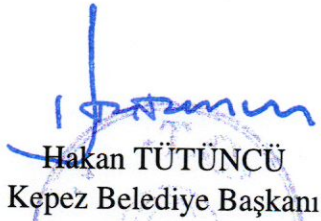 Hakan TÜTÜNCÜ
Kepez Belediye Başkanı